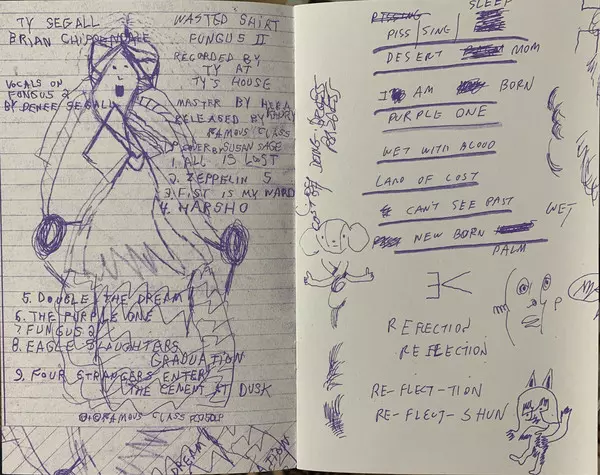 TY SEGALL
BRIAN CHIPPENDALE
WASTED SHIRT
FUNGUS II
RECORDED BY
TY AT
TY'S HOUSE
VOCALS ON
FUNGUS 2
BY DENEE SEGALL
MASTER BY HEBA
KADRY
RELEASED BY
FAMOUS CLASS
BY SUSAN SAGE
1. ALL IS LOST
2. ZEPPELIN 5
3. FIST IS MY WARD
4. HARSHO
5. DOUBLE THE DREAM
6. THE PURPLE ONE
7. FUNGUS 2
8. EAGLE SLAUGHTERS
GRADUATION
9. FOUR STRANGERS ENTER
THE CEMENT AT DUSK
FAMOUS CLASS
DREAM
SLEEP
PISSING
PISS SING
DESERT MOM
I AM BORN
PURPLE ONE
WET WITH A LOUD
LAND OF COST
CAN'T SEE PAST
WET
NEW BORN
PALM
REFLECTION
RE-FLECT-TION
RE-FLECT-SHUN